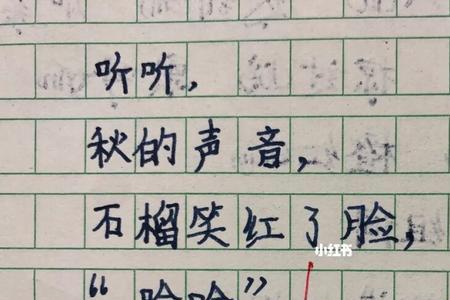 听听，
秋的声音，
石榴笑红了脸，
小红书
“哈哈”